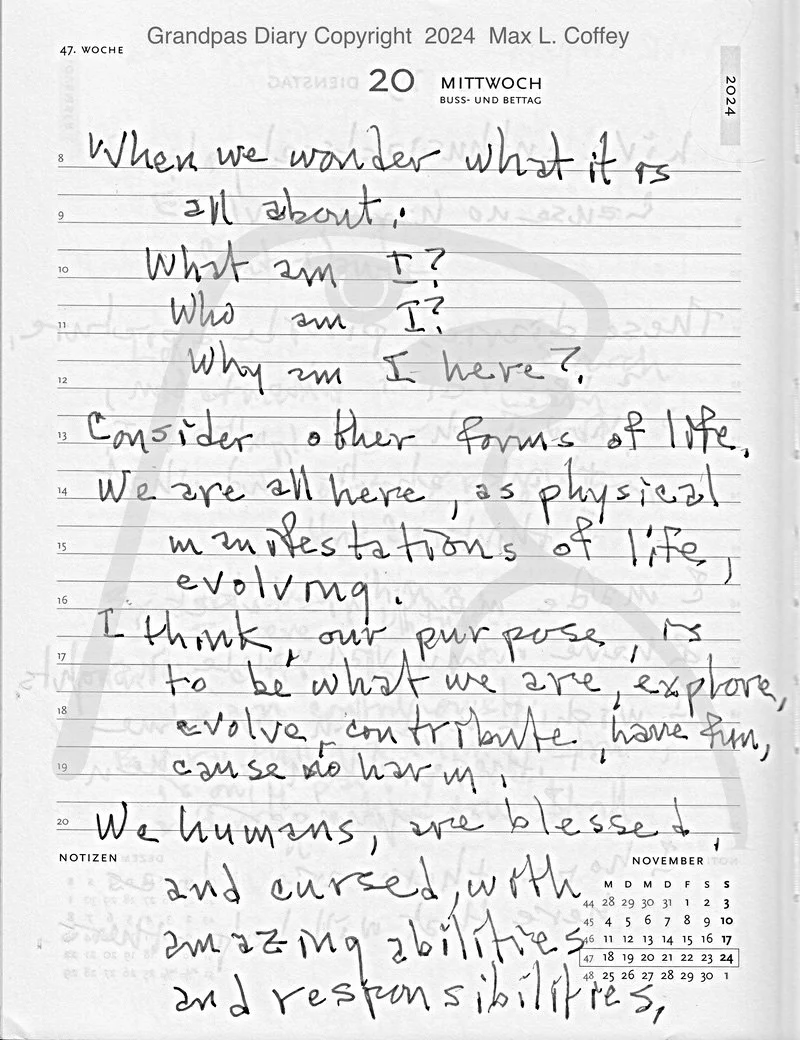 Grandpas Diary Copyright 2024 Max L. Coffey
47. WOCHE
20 MITTWOCH
BUSS- UND BETTAG
2024
8 When we wonder what it is
9 all about.
10 What am I?
11 Who am I?
12 Why am I here?.
13 Consider other forms of life.
14 We are all here, as physical
15 manifestations of life,
evolving.
16
I think, our purpose, is
17
to be what we are, explore,
18 evolve, contribute, have fun,
19 cause no harm.
20 We humans, are blessed,
NOTIZEN
and cursed, with
amazing abilities
and responsibilities,
NOVEMBER
M D M D F S S
44 28 29 30 31 1 2 3
45 4 5 6 7 8 9 10
46 11 12 13 14 15 16 17
47 18 19 20 21 22 23 24
48 25 26 27 28 29 30 1